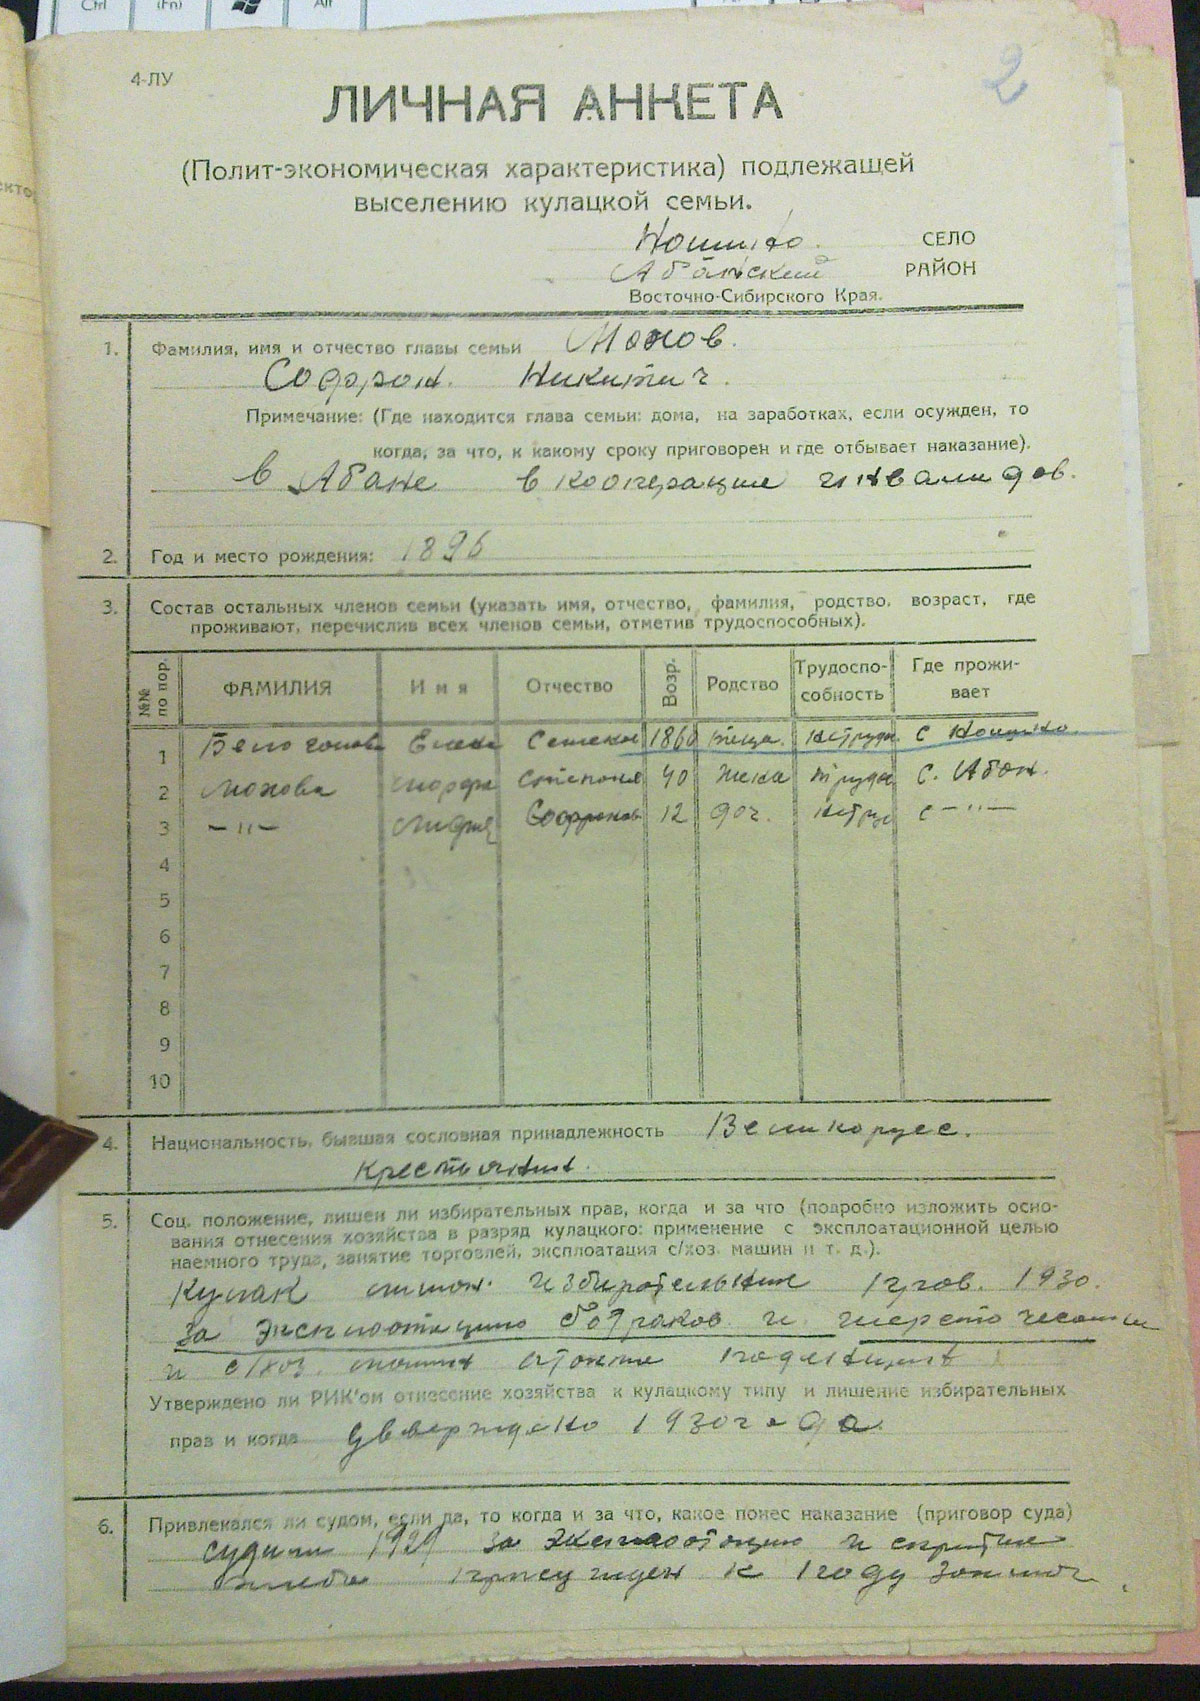 Ctrl (Fn) Alt
2
4-ЛУ
ЛИЧНАЯ АНКЕТА
(Полит-экономическая характеристика) подлежащей
выселению кулацкой семьи.
СЕЛО
Абанский РАЙОН
Восточно-Сибирского Края.
1. Фамилия, имя и отчество главы семьи Мохов.
Софрон. Никитич.
Примечание: (Где находится глава семьи: дома, на заработках, если осужден, то
когда, за что, к какому сроку приговорен и где отбывает наказание).
в Абане в кооперации инвалидов.
2. Год и место рождения: 1896
3. Состав остальных членов семьи (указать имя, отчество, фамилия, родство, возраст, где
проживают, перечислив всех членов семьи, отметив трудоспособных).
№№ по пор. ФАМИЛИЯ Имя Отчество Возр. Родство Трудоспо-собность Где прожи-вает
1 1860 теща. нетруд. с
2 Мохова 40 жена труд с. Абан.
3 —"— Софронов 12 доч. нетруд с —"—
4
5
6
7
8
9
10
4. Национальность, бывшая сословная принадлежность Великорусс.
крестьянин.
5. Соц. положение, лишен ли избирательных прав, когда и за что (подробно изложить осно-
вания отнесения хозяйства в разряд кулацкого: применение с эксплоатационной целью
наемного труда, занятие торговлей, эксплоатация с/хоз. машин и т. д.).
Кулак лишон. избирательних пров. 1930.
за эксплоотациюботраков и
и с/хоз. машин
Утверждено ли РИК'ом отнесение хозяйства к кулацкому типу и лишение избирательных
прав и когда 1930 года.
6. Привлекался ли судом, если да, то когда и за что, какое понес наказание (приговор суда)
судили 1929 за и скрытие
хлеба присужден к 1 году